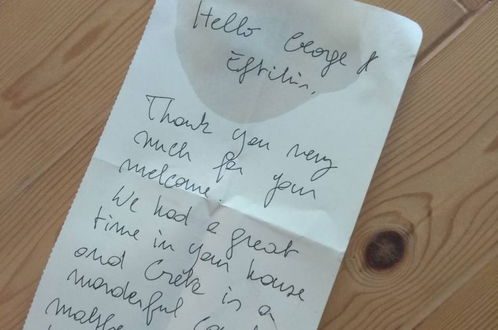 Hello George &
Eftihia,
Thank you very
much for your
welcome.
We had a great
time in your house
and Crete is a
wonderful
maybe